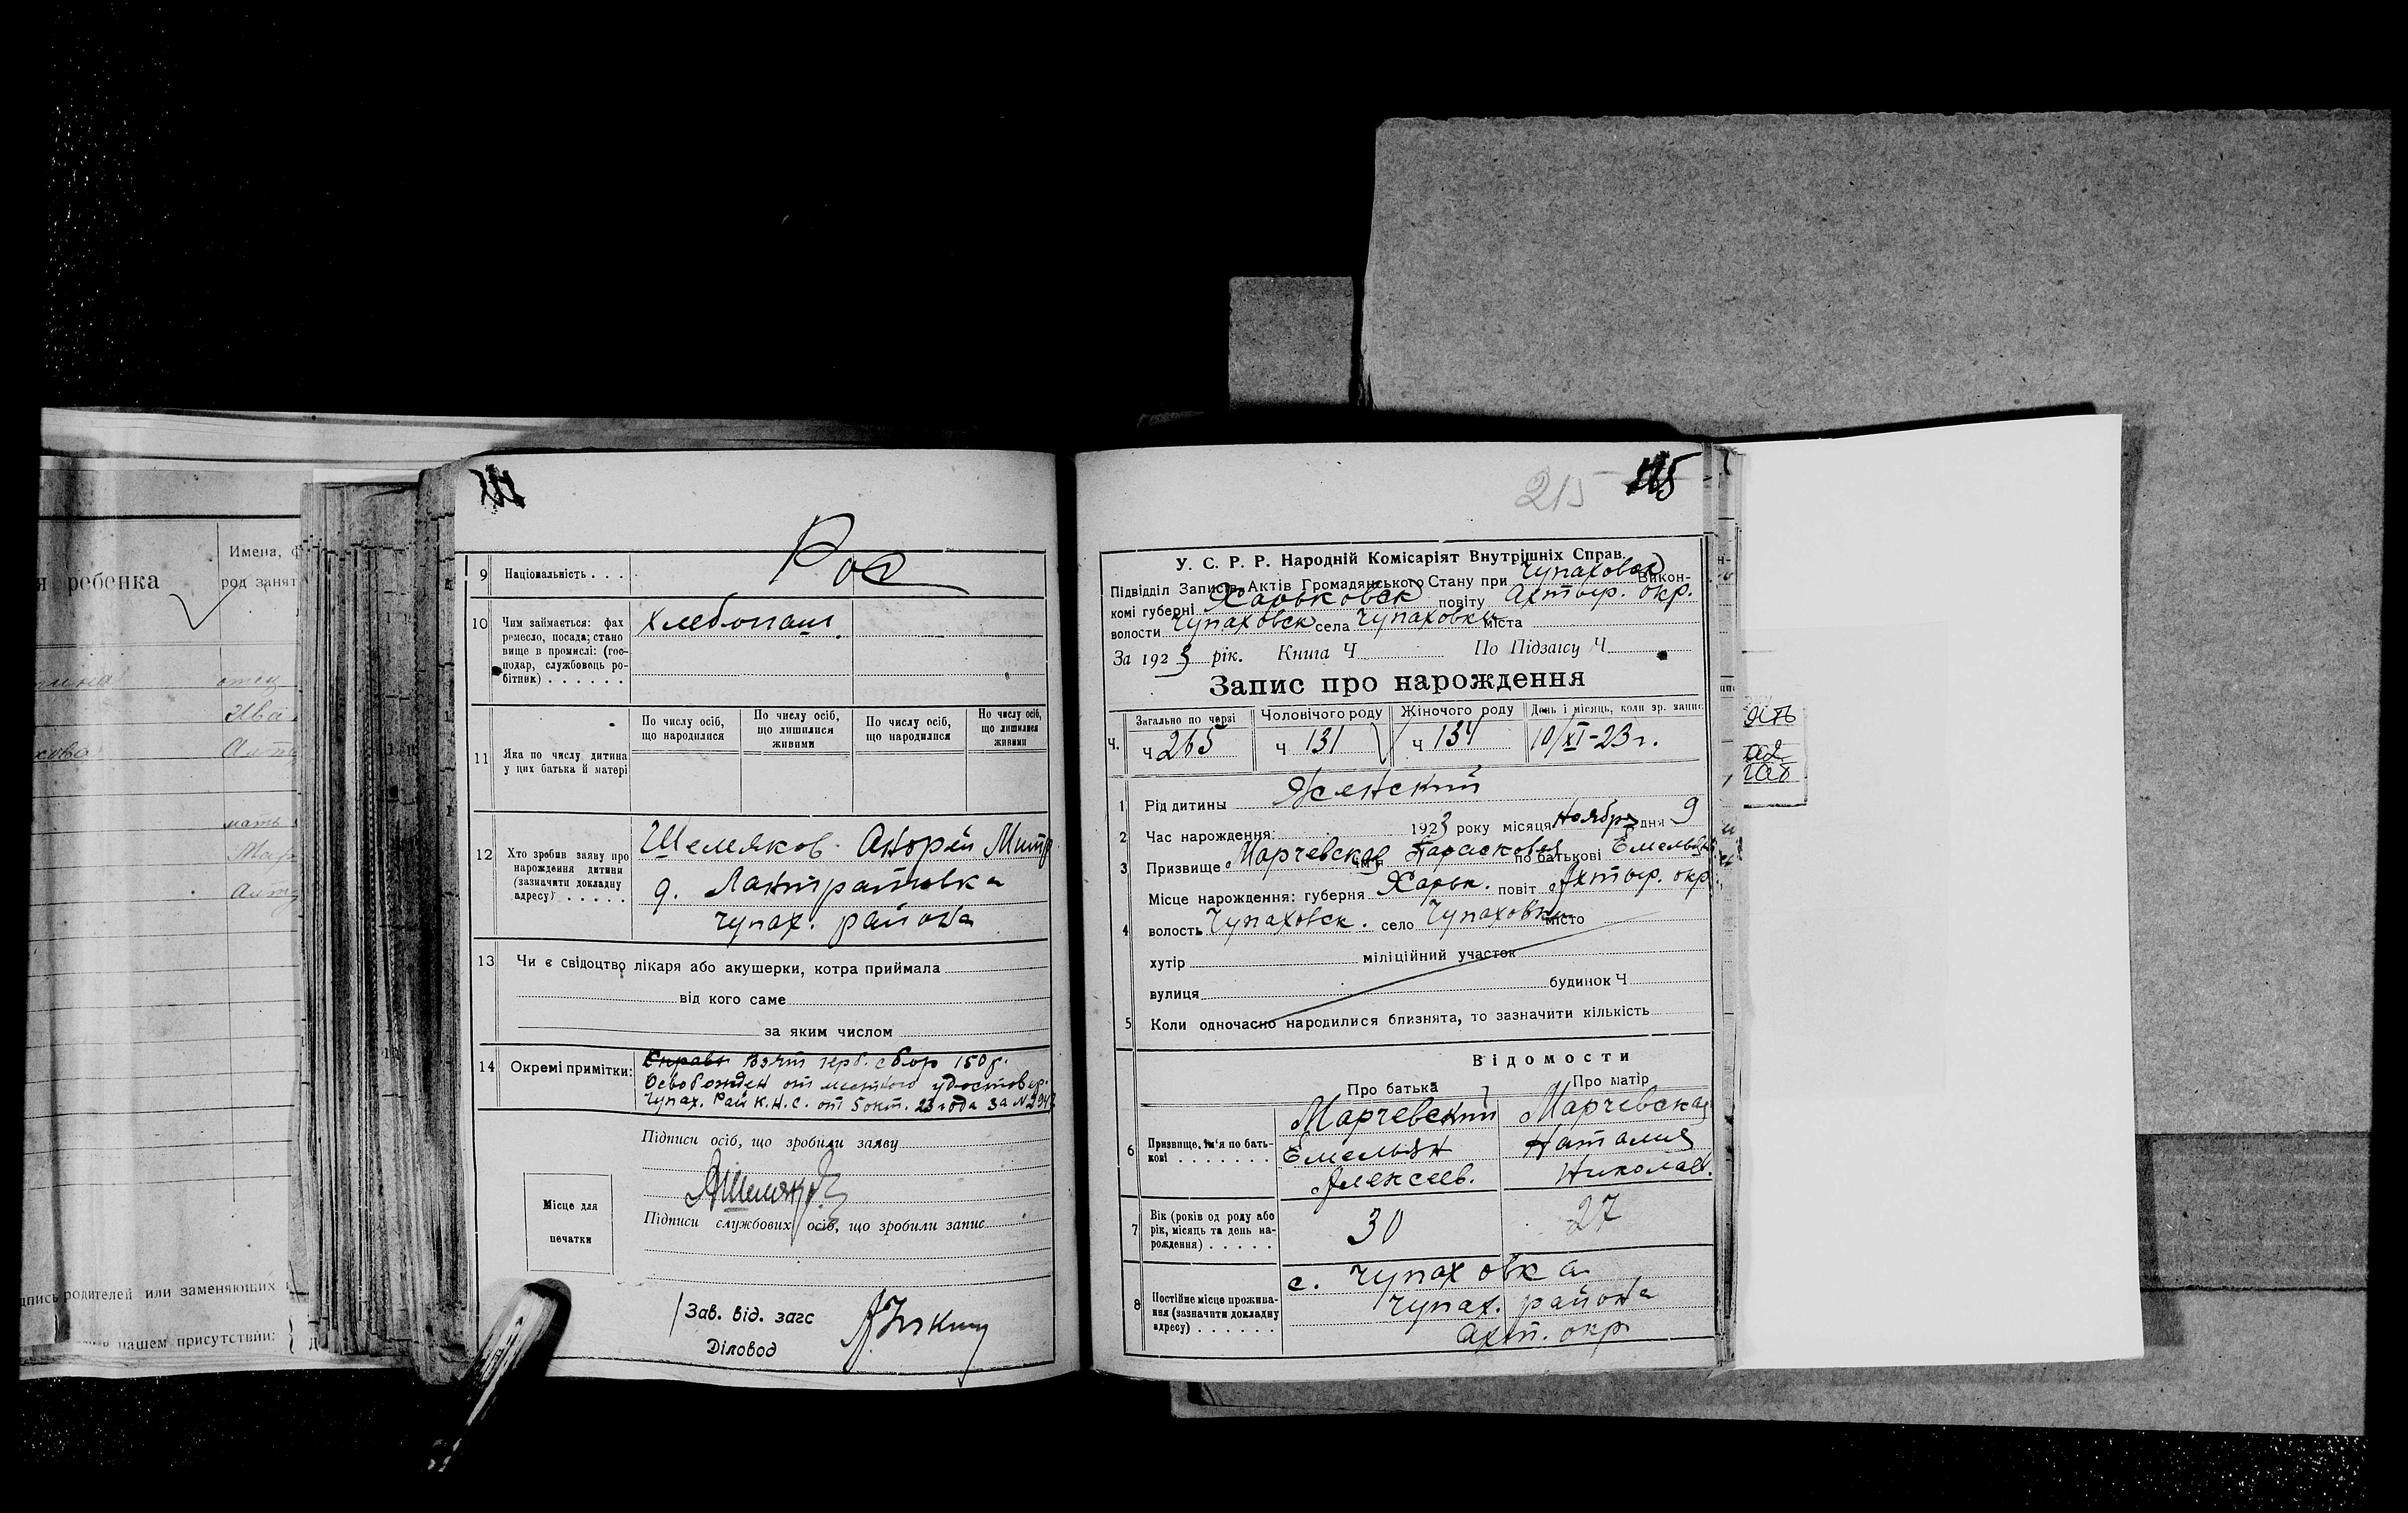 я ребенка
Имена, ф
род занят
отец
мать
дпись родителей или заменяющих
нашем присутствии:
9 Національність . . . Рос
10 Чим займається: фах
ремесло, посада; стано
вище в промислі: (гос-
подар, службовець ро-
бітник) . . . . . .
хлебопаш.
11 Яка по числу дитина
у цих батька й матері
По числу осіб,
що народилися
По числу осіб,
що лишилися
живими
По числу осіб,
що народилися
По числу осіб,
що лишилися
живими
12 Хто зробив заяву про
нарождення дитини
(зазначити докладну
адресу) . . . . .
Шемяков Андрей Митр
д. Лантратовка
Чупах. района
13 Чи є свідоцтво лікаря або акушерки, котра приймала
від кого саме
за яким числом
14 Окремі примітки:
Взят герб. сбор 150 р.
Освобожден от местного удостовер.
Чупах. Рай К.Н.С. от 5 окт. 23 года за №
Підписи осіб, що зробили заяву
АШемяков
Підписи службових осіб, що зробили запис
Місце для
печатки
Зав. від. загс
Діловод
215
У. С. Р. Р. Народній Комісаріят Внутрішніх Справ.
Підвідділ Записів Актів Громадянського Стану при Чупаховск Викон-
комі губерні Харьковск повіту Ахтыр. окр.
волости Чупаховск села Чупаховки міста
За 1923 рік. Книга Ч По Підзагсу Ч
Запис про нарождення
Загально по черзі Чоловічого роду Жіночого роду День і місяць, коли зр. запис
Ч. Ч 265 Ч 131 Ч 134 10/XI-23 г.
1 Рід дитини Женский
2 Час нарождення: 1923 року місяця Ноября дня 9
3 Призвище Марчевская ім'я Парасковья по батькові Емельян
4 Місце нарождення: губерня Харьк. повіт Ахтыр. окр.
волость Чупаховск. село Чупаховка місто
хутір міліційний участок
вулиця будинок Ч
5 Коли одночасно народилися близнята, то зазначити кількість
Відомости
Про батька Про матір
6 Призвище, ім'я по бать-
кові . . . . . . .
Марчевский
Емельян
Алексеев.
Марчевская
Наталия
Николаев.
7 Вік (років од роду або
рік, місяць та день на-
рождення) . . . . .
30 27
8 Постійне місце прожива-
ння (зазначити докладну
адресу) . . . . . .
с. Чупаховка
Чупах. района
Ахт. окр